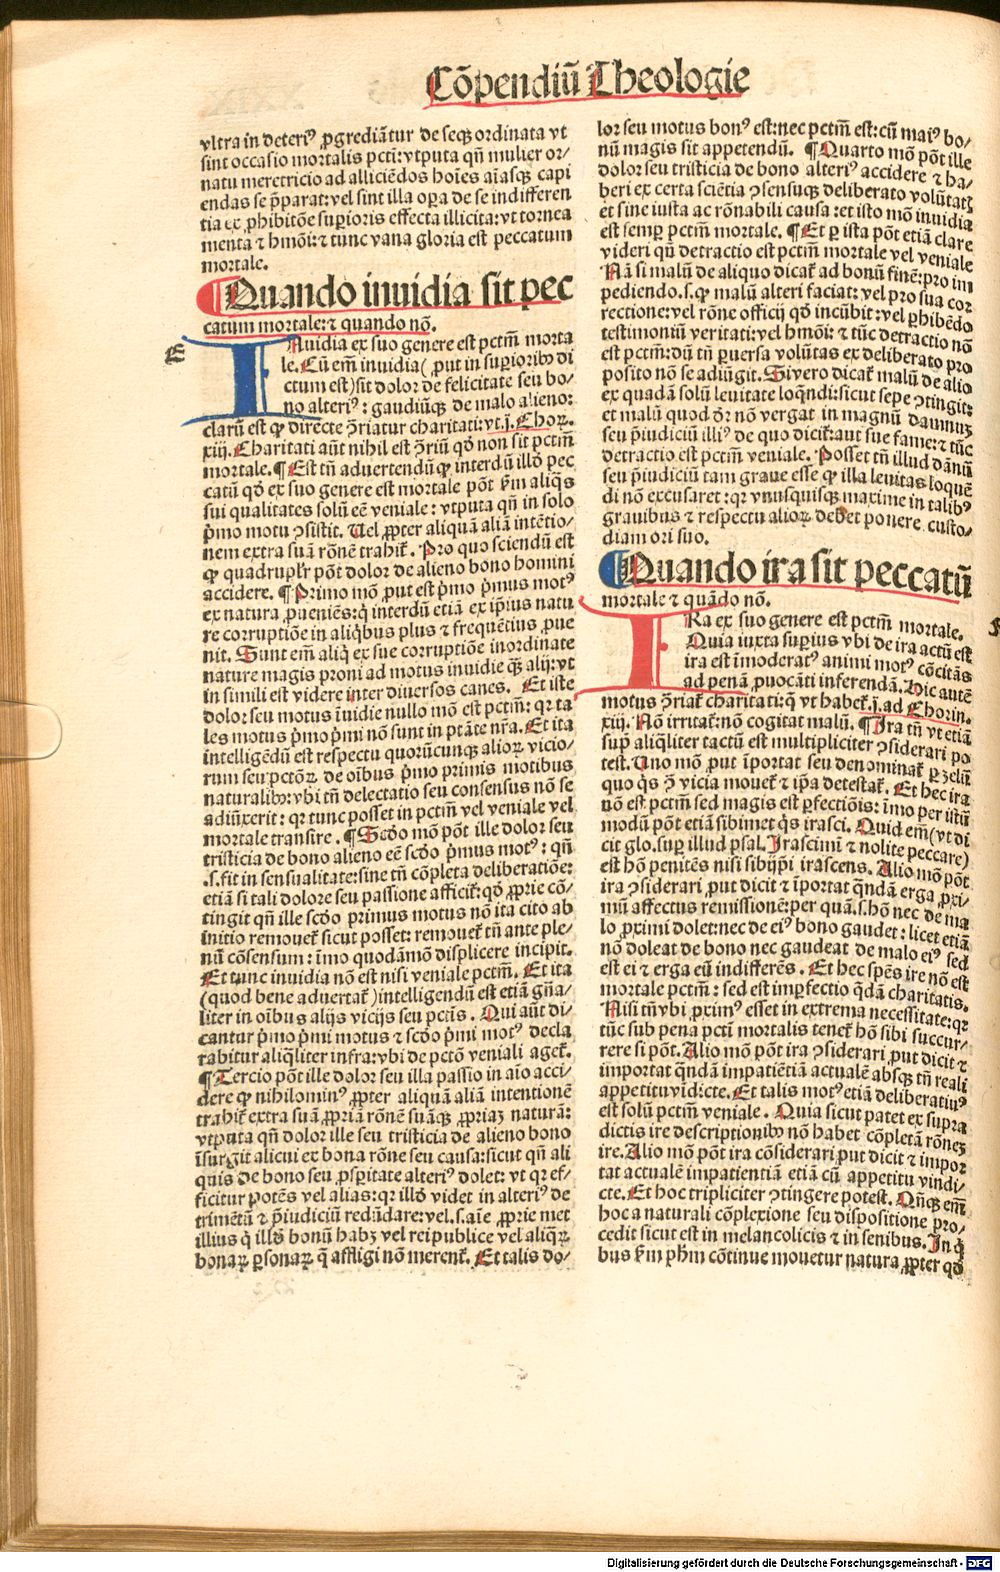 Cōpendiū Theologie
vltra in deteriꝰ ꝓgrediātur de seqꝫ ordinata vt
sint occasio mortalis pcti: vtputa qñ mulier or/
natu meretricio ad alliciēdos hoīes aīasqꝫ capi
endas se p̄parat: vel sint illa oꝑa de se indifferen
tia ex ꝓhibitōe suꝑioris effecta illicita: vt tornea
menta ⁊ hmōi: ⁊ tunc vana gloria est peccatum
mortale.
¶ Quando inuidia sit pec
catum mortale: ⁊ quando nō.
E
INuidia ex suo genere est pctm̄ morta
le. Cū em̄ inuidia (ꝓut in suꝑioribꝰ di
ctum est) sit dolor de felicitate seu bo/
no alteriꝰ: gaudiūqꝫ de malo alieno:
clarū est ꝙ directe ꝯ̄riatur charitati: vt .j. Choꝝ.
xiij. Charitati aūt nihil est ꝯ̄riū qd̄ non sit pctm̄
mortale. ¶ Est tn̄ aduertendū ꝙ interdū illd̄ pec
catū qd̄ ex suo genere est mortale pōt s̄m aliq̄s
sui qualitates solū eē veniale: vtputa qñ in solo
p̄mo motu ꝯsistit. Uel ꝓpter aliquā aliā intētio/
nem extra suā rōnē trahit̄. Pro quo sciendū est
ꝙ quadruplr̄ pōt dolor de alieno bono homini
accidere. ¶ Primo mō ꝓut est p̄mo p̄mus motꝰ
ex natura ꝓueniēs: q̇ interdū etiā ex ip̄ius natu
re corruptiōe in aliq̇bus plus ⁊ frequētius ꝓue
nit. Sunt em̄ aliq̇ ex sue corruptiōe inordinate
nature magis proni ad motus inuidie qꝫ̄ alij: vt
in simili est videre inter diuersos canes. Et iste
dolor seu motus īuidie nullo mō est pctm̄: qꝛ ta
les motus p̄mo p̄mi nō sunt in ptāte nr̄a. Et ita
intelligēdū est respectu quorūcunqꝫ alioꝝ vicio/
rum seu pctōꝝ de oībus p̄mo primis motibus
naturalibꝰ: vbi tn̄ delectatio seu consensus nō se
adiūxerit: qꝛ tunc posset in pctm̄ vel veniale vel
mortale transire. ¶ Scd̄o mō pōt ille dolor seu
tristicia de bono alieno eē scd̄o p̄mus motꝰ: qñ
.s. fit in sensualitate: sine tn̄ cōpleta deliberatiōe:
etiā si tali dolore seu passione afficit̄: qd̄ ꝓprie cō/
tingit qñ ille scd̄o primus motus nō ita cito ab
initio remouet̄ sicut posset: remouet̄ tn̄ ante ple/
nū cōsensum: īmo quodāmō displicere incipit.
Et tunc inuidia nō est nisi veniale pctm̄. Et ita
(quod bene aduertat̄) intelligendū est etiā gn̄a/
liter in oībus alijs vicijs seu pctīs. Qui aūt di/
cantur p̄mo p̄mi motus ⁊ scd̄o p̄mi motꝰ decla
rabitur aliq̄liter infra: vbi de pctō veniali aget̄.
¶ Tercio pōt ille dolor seu illa passio in aīo acci/
dere ꝙ nihilominꝰ ꝓpter aliquam aliā intentionē
trahit̄ extra suā ꝓpriā rōnē suāqꝫ ꝓpriaꝫ naturā:
vtputa qñ dolor ille seu tristicia de alieno bono
īsurgit alicui ex bona rōne seu causa: sicut qñ ali
quis de bono seu ꝓsꝑitate alteriꝰ dolet: vt qꝛ ef/
ficitur potēs vel alias: qꝛ illd̄ videt in alteriꝰ de
trimētū ⁊ p̄iudiciū redūdare: vel .s. aīe ꝓprie met
illius q̇ illd̄ bonū habꝫ vel reipublice vel aliq̄ꝝ
bonaꝝ ꝑsonaꝝ q̄ affligi nō merent̄. Et talis do/
lor seu motus bonꝰ est: nec pctm̄ est: cū maiꝰ bo/
nū magis sit appetendū. ¶ Quarto mō pōt ille
dolor seu tristicia de bono alteriꝰ accidere ⁊ ha/
beri ex certa sciētia ꝯsensuqꝫ deliberato volūtatꝭ
et sine iusta ac rōnabili causa: et isto mō inuidia
est semꝑ pctm̄ mortale. ¶ Et ꝑ ista pōt etiā clare
videri qñ detractio est pctm̄ mortale vel veniale
Nā si malū de aliquo dicat̄ ad bonū finē: pro im
pediendo .s. ꝙ malū alteri faciat: vel pro sua cor
rectione: vel rōne officij qd̄ incūbit: vel ꝑhibēdo
testimoniū veritati: vel hmōi: ⁊ tūc detractio nō
est pctm̄: dū tn̄ ꝑuersa volūtas ex deliberato pro
posito nō se adiūgit. Si vero dicat̄ malū de alio
ex quadā solū leuitate loq̄ndi: sicut sepe ꝯtingit:
et malū quod dr̄ nō vergat in magnū damnuꝫ
seu p̄iudiciū illiꝰ de quo dicit̄: aut sue fame: ⁊ tūc
detractio est pctm̄ veniale. Posset tn̄ illud dānū
seu p̄iudiciū tam graue esse ꝙ illa leuitas loquē
di nō excusaret: qꝛ vnusquisqꝫ maxime in talibꝰ
grauibus ⁊ respectu alioꝝ debet ponere custo/
diam ori suo.
¶ Quando ira sit peccatū
mortale ⁊ quādo nō.
IRa ex suo genere est pctm̄ mortale.
Quia iuxta suꝑius vbi de ira actū est
ira est īmoderatꝰ animi motꝰ cōcitās
ad penā ꝓuocāti inferendā. Hic autē
motus ꝯ̄riat̄ charitati: q̄ vt habet̄ .j. ad Chorin.
xiij. Nō irritat̄: nō cogitat malū. ¶ Ira tn̄ vt etiā
supra aliq̄liter tactū est multipliciter ꝯsiderari po
test. Uno mō ꝓut īportat seu denominat̄ ꝑ zelū
quo q̇s ꝯ̄ vicia mouet̄ ⁊ ip̄a detestat̄. Et hec ira
nō est pctm̄ sed magis est ꝑfectiōis: īmo per istū
modū pōt etiā sibimet q̇s irasci. Quid em̄ (vt di
cit glo. suꝑ illud psal. Irascimī ⁊ nolite peccare)
est hō penitēs nisi sibijp̄i irascens. Alio mō pōt
ira ꝯsiderari ꝓut dicit ⁊ īportat q̄ndā erga ꝓxi/
mū affectus remissionē: per quā .s. hō nec de ma
lo ꝓximi dolet: nec de eiꝰ bono gaudet: licet etiā
nō doleat de bono nec gaudeat de malo eiꝰ sed
est ei ⁊ erga eū indifferēs. Et hec spēs ire nō est
mortale pctm̄: sed est imꝑfectio q̄dā charitatis.
Nisi tn̄ vbi ꝓximꝰ esset in extrema necessitate: qꝛ
tūc sub pena pcti mortalis tenet̄ hō sibi succur/
rere si pōt. Alio mō pōt ira ꝯsiderari ꝓut dicit ⁊
importat q̄ndā impatiētiā actualē absqꝫ tn̄ reali
appetitu vīdicte. Et talis motꝰ etiā deliberatiuꝰ
est solū pctm̄ veniale. Quia sicut patet ex supra
dictis ire descriptionibꝰ nō habet cōpletā rōneꝫ
ire. Alio mō pōt ira cōsiderari ꝓut dicit ⁊ impor
tat actualē impatientiā etiā cū appetitu vindi/
cte. Et hoc tripliciter ꝯtingere potest. Qn̄qꝫ em̄
hoc a naturali cōplexione seu dispositione pro/
cedit sicut est in melancolicis ⁊ in senibus. In q̇
bus s̄m ph̄m cōtinue mouetur natura ꝓpter qd̄
Digitalisierung gefördert durch die Deutsche Forschungsgemeinschaft - DFG